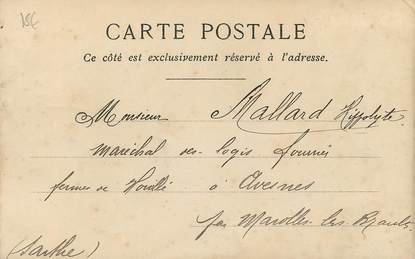 CARTE POSTALE
Ce côté est exclusivement réservé à l'adresse.
Monsieur Mallard Hippolyte
maréchal des logis fourrier
ferme de à Avesnes
par Marolles les Braults
(Sarthe)